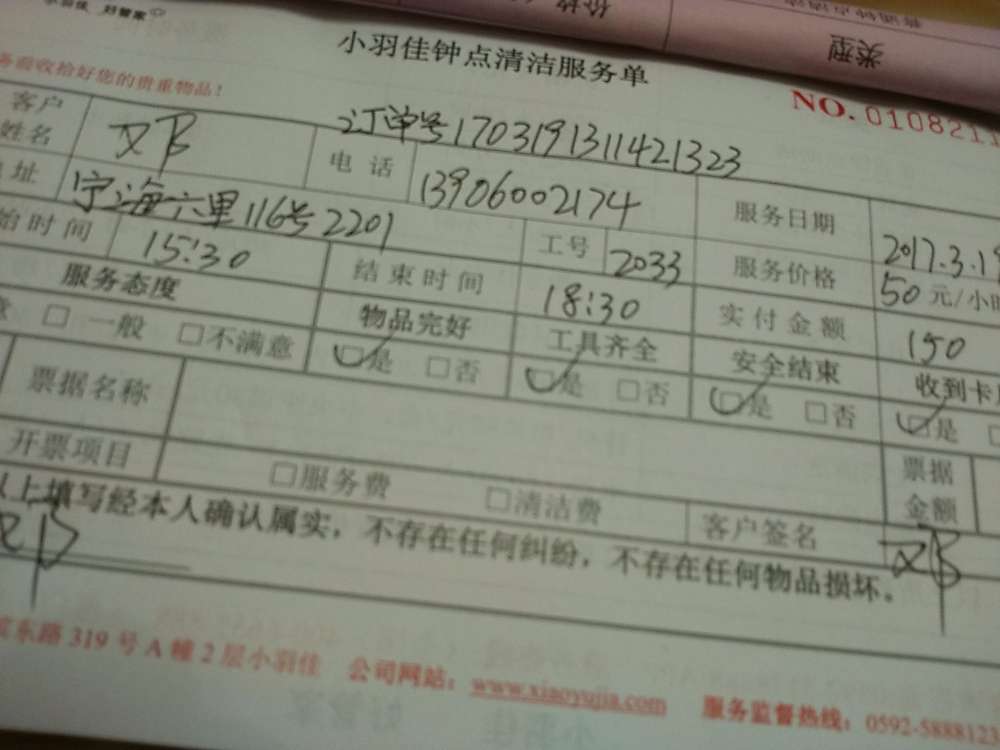 小羽佳 好管家
类型
小羽佳钟点清洁服务单
务前收拾好您的贵重物品!
NO. 0108211
订单号1703191311421323
客户姓名 电话 13906002174 服务日期 2017.3.1
址 宁海六里116号2201 工号 2033 服务价格 50元/小时
始时间 15:30 结束时间 18:30 实付金额 150
服务态度 物品完好 工具齐全 安全结束 收到卡
意 □一般 □不满意 □是 □否 □是 □否 □是 □否 □是
票据名称 票据金额
开票项目 □服务费 □清洁费 客户签名
以上填写经本人确认属实,不存在任何纠纷,不存在任何物品损坏。
东路319号A幢2层小羽佳 公司网站:www.xiaoyujia.com 服务监督热线:0592-5888123